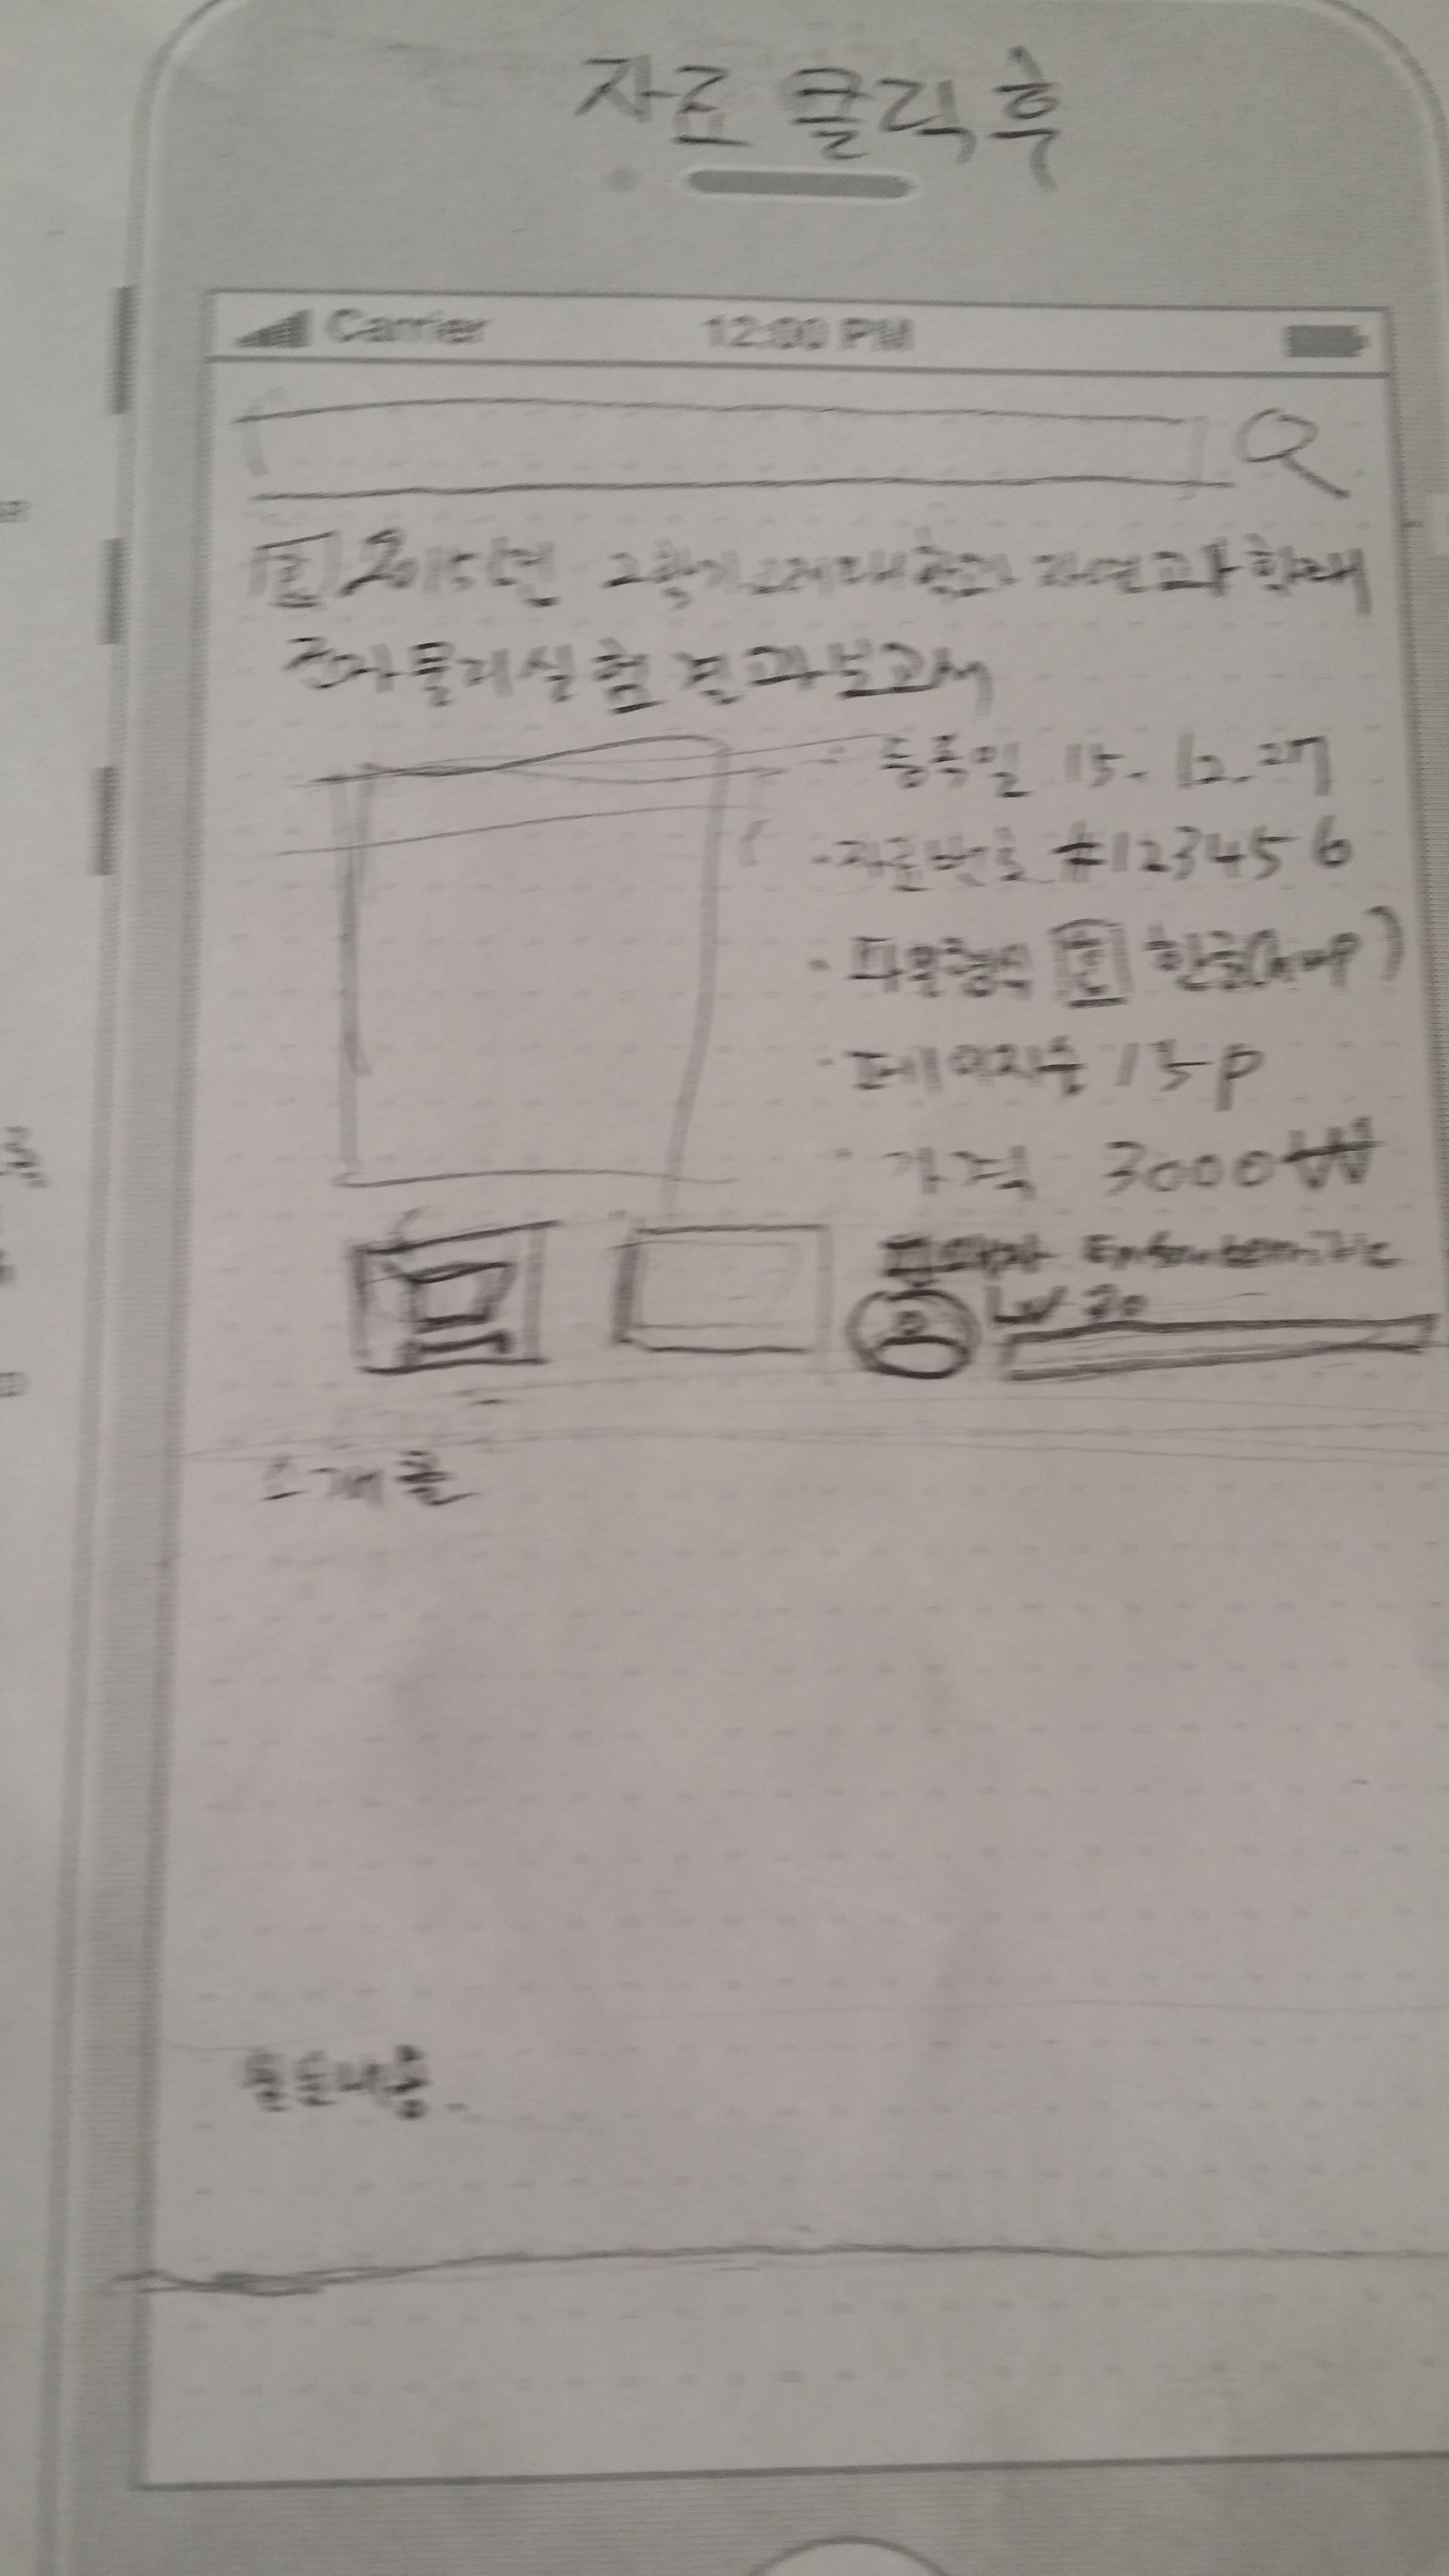 자료 클릭 후
Carrier 12:00 PM
호 2015년 2학기 고려대학교 자연과학대
전자물리실험 결과보고서
등록일 15.12.27
- 자료번호 #123456
- 파일형식 호 한글(hwp)
- 페이지수 13p
- 가격 3000₩
판매자
Lv 20
소개글